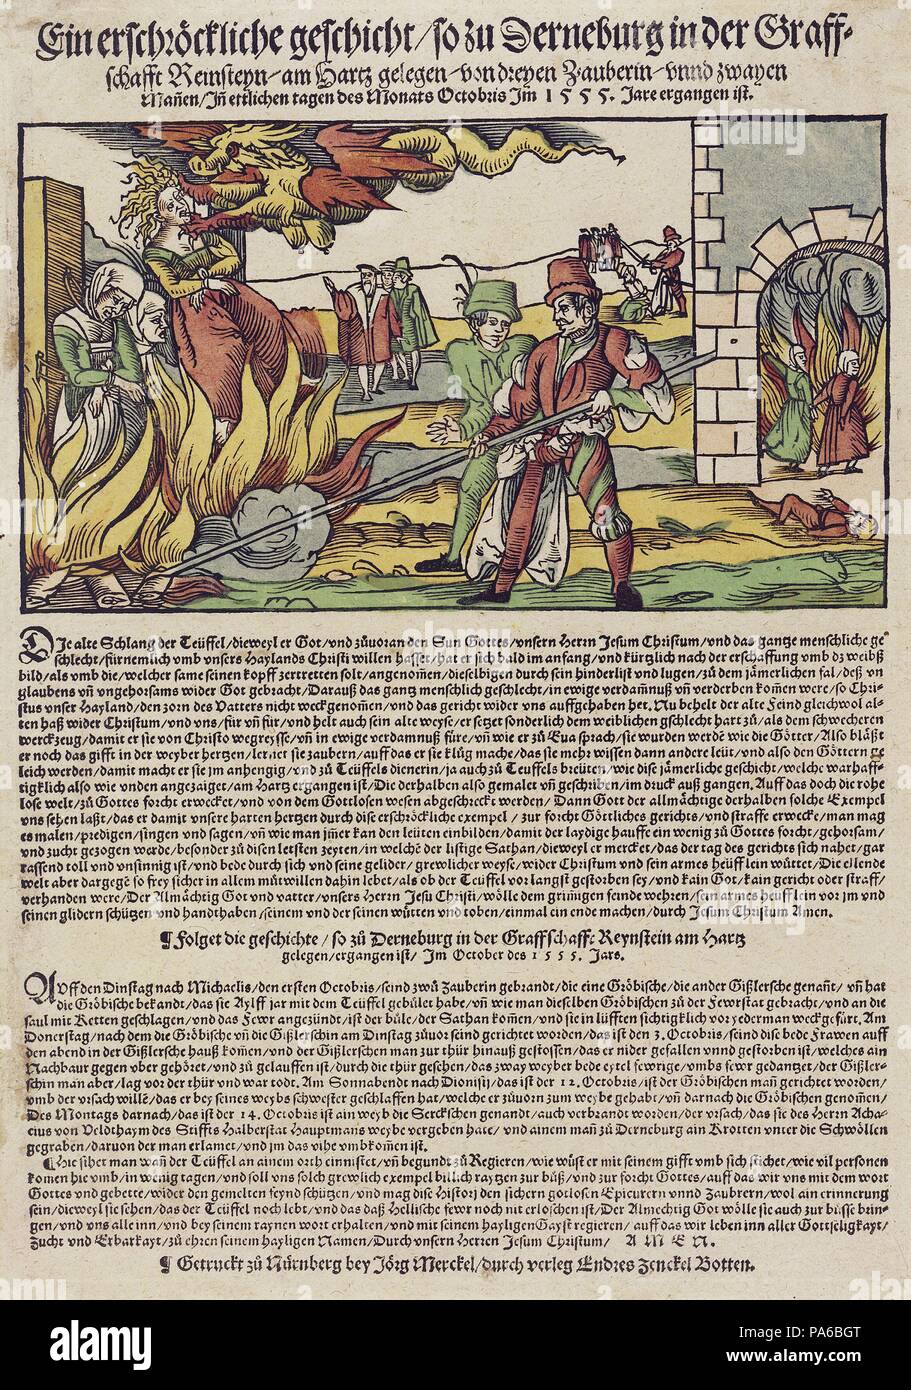 Ein erschröckliche geschicht / so zu Derneburg in der Graff-
schafft Reinsteyn / am Hartz gelegen / von dreyen Zauberin / vnnd zwayen
Mañen / Jñ ettlichen tagen des Monats Octobris Jm 1555. Jare ergangen ist.
DJe alte Schlang der Teüffel / dieweyl er Got / vnd zůuoran den Sun Gottes / vnsern Herrn Jesum Christum / vnd das gantze menschliche ge
schlecht / fürnemlich vmb vnsers Haylands Christi willen hasset / hat er sich bald im anfang / vnd kürtzlich nach der erschaffung vmb dz weibß
bild / als vmb die / welcher same seinen kopff zertretten solt / angenomen / dieselbigen durch sein hinderlist vnd lugen / zů dem jämerlichen fal / deß vn
glaubens vñ vngehorsams wider Got gebracht / Darauß das gantz menschlich geschlecht / in ewige verdamnuß vñ verderben kom̃en were / so Chris-
stus vnser Hayland / den zorn des Vatters nicht weckgenomen / vnd das gericht wider vns auffgehaben het. Nu behelt der alte Feind gleichwol al-
ten haß wider Christum / vnd vns / für vñ für / vnd helt auch sein alte weyse / er setzet sonderlich dem weiblichen gschlecht hart zů / als dem schwecheren
werckzeug / damit er sie von Christo wegreysse / vñ in ewige verdamnuß füre / vñ wie er zů Eua sprach / sie wurden werdẽ wie die Götter / Also bläßt
er noch das gifft in der weyber hertzen / lernet sie zaubern / auff das er sie klůg mache / das sie mehr wissen dann andere leüt / vnd also den Göttern ge
leich werden / damit macht er sie jm anhengig / vnd zů Teüffels dienerin / ja auch zů Teuffels breüten / wie dise jämerliche geschicht / welche warhaff-
tigklich also wie vnden angezaiget / am Hartz ergangen ist / Die derhalben also gemalet vñ geschriben / im druck auß gangen. Auff das doch die rohe
lose welt / zů Gottes forcht erwecket / vnd von dem Gottlosen wesen abgeschreckt werden / Dann Gott der allmächtige derhalben solche Exempel
vns sehen laßt / das er damit vnsere harten hertzen durch dise erschröckliche exempel / zur forcht Göttliches gerichts / vnd straffe erwecke / man mag
es malen / predigen / singen vnd sagen / vñ wie man jm̃er kan den leüten einbilden / damit der laydige hauffe ein wenig zů Gottes forcht / gehorsam /
vnd zucht gezogen werde / besonder zů disen letsten zeyten / in welchẽ der listige Sathan / dieweyl er mercket / das der tag des gerichts sich nahet / gar
rassend toll vnd vnsinnig ist / vnd bede durch sich vnd seine gelider / grewlicher weyse / wider Christum vnd sein armes heüfflein wüttet / Die ellende
welt aber dargegẽ so frey sicher in allem můtwillen dahin lebet / als ob der Teüffel vor langst gestorben sey / vnd kain Got / kain gericht oder straff /
verhanden were / Der Allmächtig Got vnd vatter / vnsers Herrn Jesu Christi / wölle dem grimigen feinde wehren / sein armes heüfflein vor jm vnd
seinen glidern schützen / vnd handthaben / seinem vnd der seinen wütten vnd toben / einmal ein ende machen / durch Jesum Christum Amen.
¶ Folget die geschichte / so zů Derneburg in der Graffschafft Reynstein am Hartz
gelegen / ergangen ist / Im October des 1555. Jars.
AVff den Dinstag nach Michaelis / den ersten Octobris / seind zwů Zauberin gebrandt / die eine Gröbische / die ander Gißlersche genañt / vñ hat
die Gröbische bekandt / das sie Aylff jar mit dem Teüffel gebůlet habe / vñ wie man dieselben Gröbischen zů der Fewrstat gebracht / vnd an die
saul mit Ketten geschlagen / vnd das Fewr angezündt / ist der bůle / der Sathan komen / vnd sie in lüfften sichtigklich vor yederman weckgefürt. Am
Donerstag / nach dem die Gröbische vñ die Gißlerschin am Dinstag zůuor seind gerichtet worden / das ist den 3. Octobris / seind dise bede Frawen auff
den abend in der Gißlersche hauß kom̃en / vnd der Gißlerschen man zur thür hinauß gestossen / das er nider gefallen vnnd gestorben ist / welches ain
Nachbaur gegen vber gehöret / vnd zů gelauffen ist / durch die thür gesehen / das zway weyber bede eytel fewrige / vmbs fewr gedantzet / der Gißler-
schin man aber / lag vor der thür vnd war todt. Am Sonnabendt nach Dionisij / das ist der 12. Octobris / ist der Gröbischen mañ gerichtet worden /
vmb der vrsach willẽ / das er bey seines weybs schwester geschlaffen hat / welche er zůuorn zum weybe gehabt / vñ darnach die Gröbischen genom̃en /
Des Montags darnach / das ist der 14. Octobris ist ain weyb die Serckschen genandt / auch verbrandt worden / der vrsach / das sie des Herrn Acha-
cius von Veldthaym des Stiffts Halberstat Hauptmans weybe vergeben hate / vnd ainem mañ zů Derneburg ain Krotten vnter die Schwöllen
gegraben / daruon der man erlamet / vnd jm das vihe vmbkomen ist.
¶ Hie sihet man wañ der Teüffel an ainem orth einnistet / vñ begundt zů Regieren / wie wüst er mit seinem gifft vmb sich stichet / wie vil personen
komen hie vmb / in wenig tagen / vnd soll vns solch grewlich exempel billich raytzen zur bůß / vnd zur forcht Gottes / auff das wir vns mit dem wort
Gottes vnd gebette / wider den gemelten feynd schützen / vnd mag dise Histori den sichern gotlosen Epicurern vnnd Zaubrern / wol ain erinnerung
sein / dieweyl sie sehen / das der Teüffel noch lebt / vnd das daß Hellische fewr noch nit erloschen ist / Der Almechtig Got wölle sie auch zur bůsse brin-
gen / vnd vns alle inn / vnd bey seinem raynen wort erhalten / vnd mit seinem hayligen Gayst regieren / auff das wir leben inn aller Gottseligkayt /
Zucht vnd Erbarkayt / zů ehren seinem hayligen Namen / Durch vnsern Herren Jesum Christum / A M E N.
¶ Getruckt zů Nürnberg bey Jörg Merckel / durch verleg Endres Zenckel Botten.
alamy
Image ID: PA6BGT
www.alamy.com